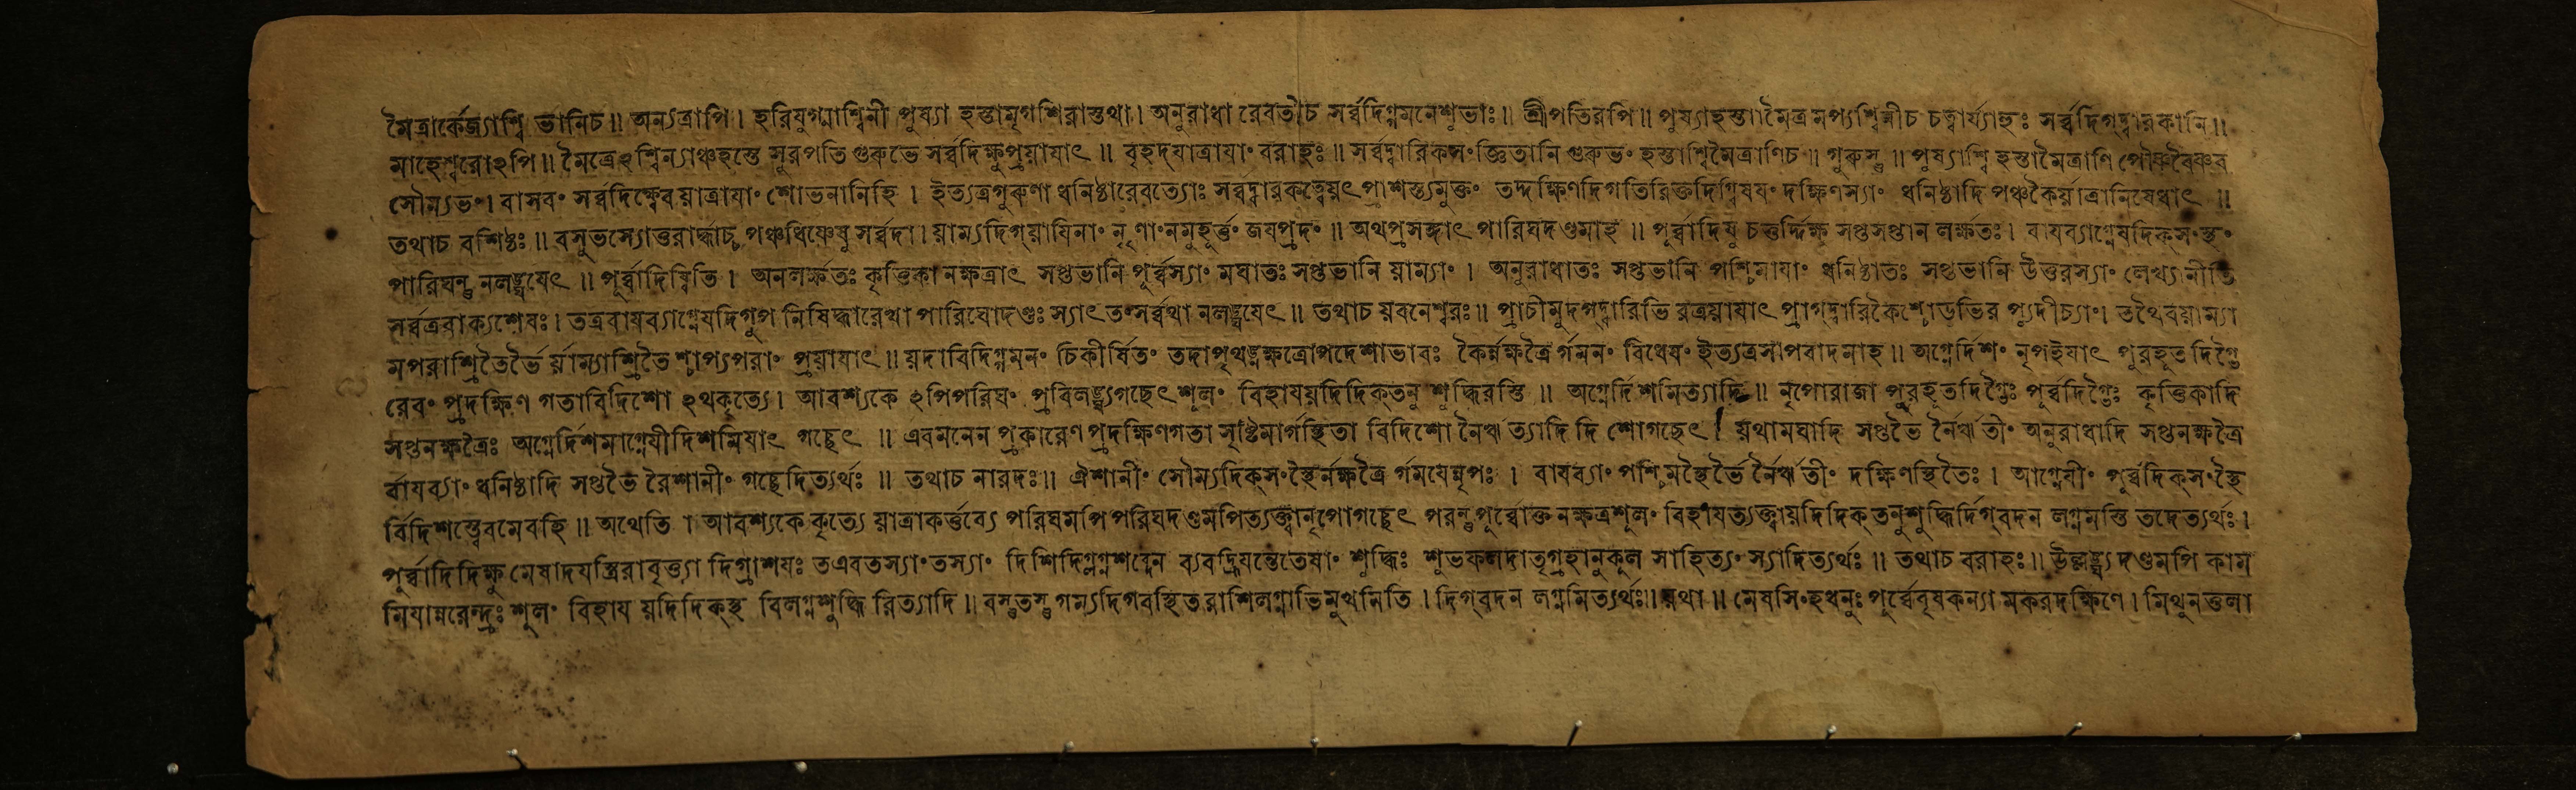 মৈত্রার্কেজ্যাশ্বি ভানিচ॥ অন্যত্রাপি। হরিযুগ্মাশ্বিনী পুষ্যা হস্তামৃগশিরাস্তথা। অনুরাধা রেবতীচ সর্ব্বদিগ্গমনেশুভাঃ॥ শ্রীপতিরপি॥ পুষ্যাহস্তামৈত্রমপ্যশ্বিনীচ চত্বার্য্যাহুঃ সর্ব্বদিগ্দ্বারকানি॥
মাহেশ্বরোঽপি॥ মৈত্রেঽশ্বিন্যাঞ্চহস্তে সুরপতি গুরুভে সর্ব্বদিক্ষুপ্রয়াযাৎ॥ বৃহদ্যাত্রাযাং বরাহঃ॥ সর্ব্বদ্বারিকসংজ্ঞিতানি গুরুভং হস্তাশ্বিমৈত্রাণিচ॥ গুরুস্তু॥ পুষ্যাশ্বি হস্তামৈত্রাণি পৌষ্ণবৈষ্ণব
সৌম্যভং। বাসবং সর্ব্বদিক্ষ্বেব য়াত্রাযাং শোভনানিহি। ইত্যত্রগুরুণা ধনিষ্ঠারেবত্যোঃ সর্ব্বদ্বারকত্বেয়ৎ প্রাশস্ত্যমুক্তং তদ্দক্ষিণদিগতিরিক্তদিগ্বিষযং দক্ষিণস্যাং ধনিষ্ঠাদি পঞ্চকৈর্য়াত্রানিষেধাৎ॥
তথাচ বশিষ্ঠঃ॥ বসুভস্যোত্তরার্দ্ধাচ্চ পঞ্চধিষ্ণ্যেষু সর্ব্বদা। য়াম্যদিগ্য়াযিনাং নৃণাং নমুহূর্ত্তং জযপ্রদং॥ অথপ্রসঙ্গাৎ পারিঘদণ্ডমাহ॥ পূর্ব্বাদিষু চতুর্দ্দিক্ষ সপ্তসপ্তান লর্ক্ষতঃ। বাযব্যাগ্নেযদিক্সংস্থং
পারিঘন্তু নলঙ্ঘযেৎ॥ পূর্ব্বাদিষ্বিতি। অনলর্ক্ষতঃ কৃত্তিকানক্ষত্রাৎ সপ্তভানি পূর্ব্বস্যাং মঘাতঃ সপ্তভানি য়াম্যাং। অনুরাধাতঃ সপ্তভানি পশ্চিমাযাং ধনিষ্ঠাতঃ সপ্তভানি উত্তরস্যাং লেখ্যানীতি
সর্ব্বত্রবাক্যশেষঃ। তত্রবাযব্যাগ্নেযদিগ্রূপ নিষিদ্ধারেখা পারিঘোদণ্ডঃ স্যাৎ তংসর্ব্বথা নলঙ্ঘযেৎ॥ তথাচ য়বনেশ্বরঃ॥ প্রাচীমুদগ্দ্বারিভি রত্রয়াযাৎ প্রাগ্দ্বারিকৈশ্চোডুভির প্যুদীচ্যাং। তথৈবয়াম্যা
মপরাশ্রিতৈর্ভৈ র্য়াম্যাশ্রিতৈ শ্চাপ্যপরাং প্রয়াযাৎ॥ য়দাবিদিগ্গমনং চিকীর্ষিতং তদাপৃথঙ্নক্ষত্রোপদেশাভাবঃ কৈর্ন্নক্ষত্রৈ র্গমনং বিধেযং ইত্যত্রসাপবাদমাহ॥ অগ্নের্দিশং নৃপইযাৎ পুরহূত দিগ্ভৈ
রেবং প্রদক্ষিণ গতাবিদিশো ঽথকৃত্যে। আবশ্যকে ঽপিপরিঘং প্রবিলঙ্ঘ্যগচ্ছেৎ শূলং বিহাযয়দিদিক্তনু শুদ্ধিরস্তি॥ অগ্নের্দিশমিত্যাদি॥ নৃপোরাজা পুরহূতদিগ্ভৈঃ পূর্ব্বদিগ্ভৈঃ কৃত্তিকাদি
সপ্তনক্ষত্রৈঃ অগ্নের্দিশমাগ্নেযীদিশমিযাৎ গচ্ছেৎ॥ এবমনেন প্রকারেণ প্রদক্ষিণগতা সৃষ্টিমার্গস্থিতা বিদিশো নৈর্ঋত্যাদি দি শোগচ্ছেৎ। য়থামঘাদি সপ্তভৈ র্নৈর্ঋতীং অনুরাধাদি সপ্তনক্ষত্রৈ
র্বাযব্যাং ধনিষ্ঠাদি সপ্তভৈ রৈশানীং গচ্ছেদিত্যর্থঃ॥ তথাচ নারদঃ॥ ঐশানীং সৌম্যদিক্সংস্থৈর্নক্ষত্রৈ র্গমযেন্নৃপঃ। বাযব্যাং পশ্চিমস্থৈর্ভৈ র্নৈর্ঋতীং দক্ষিণস্থিতৈঃ। আগ্নেযীং পূর্ব্বদিক্সংস্থৈ
র্বিদিশস্ত্বেবমেবহি॥ অথেতি। আবশ্যকে কৃত্যে য়াত্রাকর্ত্তব্যে পরিঘমপিপরিঘদণ্ডমপিত্যক্ত্বানৃপোগচ্ছেৎ পরন্তুপূর্ব্বোক্ত নক্ষত্রশূলং বিহাযত্যক্ত্বায়দিদিক্ তনুশুদ্ধির্দিগ্বদন লগ্নমস্তি তদেত্যর্থঃ।
পূর্ব্বাদিদিক্ষু মেষাদযস্ত্রিরাবৃত্ত্যা দিগ্রাশযঃ তএবতস্যাংতস্যাং দিশিদিগ্লগ্নশব্দেন ব্যবহ্রিযন্তেতেষাং শুদ্ধিঃ শুভফলদাতৃগ্রহানুকূল সাহিত্যং স্যাদিত্যর্থঃ॥ তথাচ বরাহঃ॥ উল্লঙ্ঘ্য দণ্ডমপি কাম
মিযান্নরেন্দ্রঃ শূলং বিহায য়দিদিক্স্থ বিলগ্নশুদ্ধি রিত্যাদি॥ বস্তুতস্তু গম্যদিগবস্থিত রাশিলগ্নাভিমুখমিতি। দিগ্বদন লগ্নমিত্যর্থঃ॥ য়থা॥ মেষসিংহধনুঃ পূর্ব্বেবৃষকন্যা মকরদক্ষিণে। মিথুনতুলা